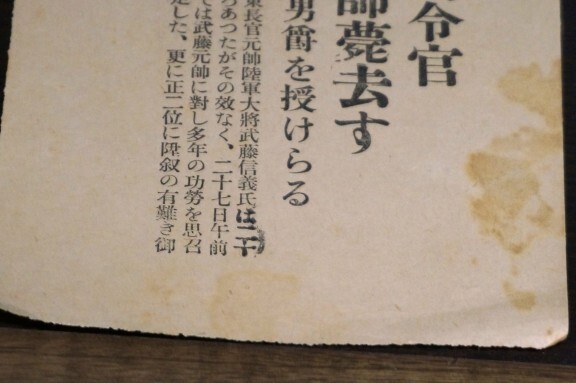 令官
師薨去す
男爵を授けらる
東長官元帥陸軍大將武藤信義氏は二十
らあつたがその效なく、二十七日午前
ては武藤元帥に對し多年の功勞を思召
定した、更に正二位に陞敘の有難き御